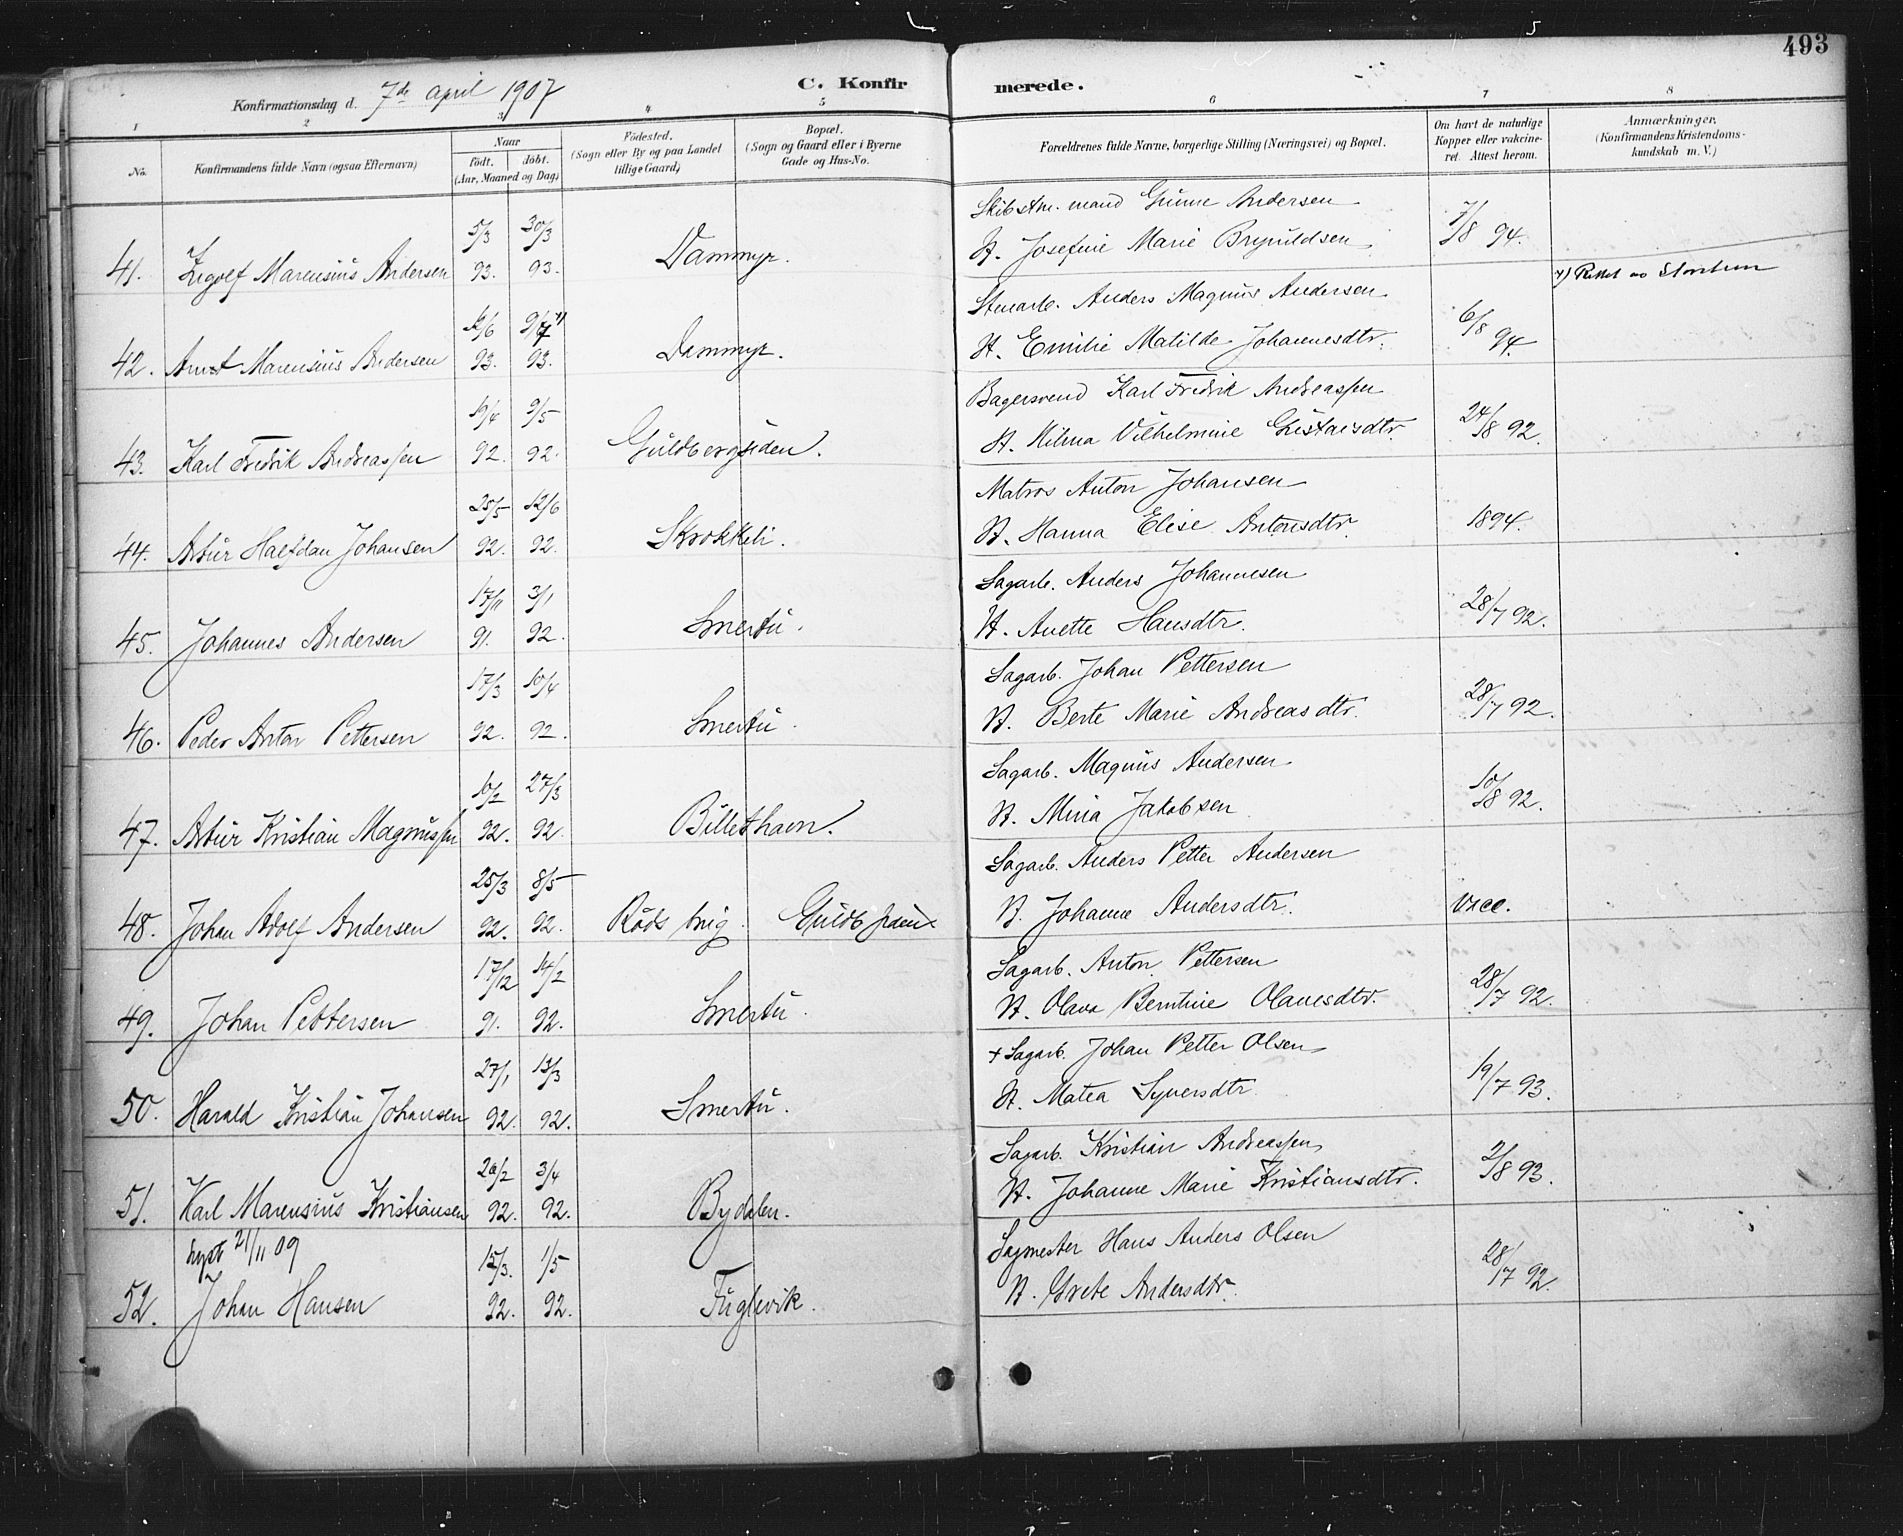 493
Konfirmationsdag d. 7de april 1907
C. Konfirmerede.
1 2 3 4 5 6 7 8
No.
Konfirmandens fulde Navn (ogsaa Efternavn)
Naar
födt. döbt.
(Aar, Maaned og Dag)
Födested.
(Sogn eller By og paa Landet
tillige Gaard)
Bopæl.
(Sogn og Gaard eller i Byerne
Gade og Hus-No.
Forældrenes fulde Navne, borgerlige Stilling (Næringsvei) og Bopæl.
Om havt de naturlige
Kopper eller vakcine-
ret. Attest herom.
Anmærkninger.
(Konfirmandens Kristendoms-
kundskab m. V.)
5/3 30/3 Gunne Andersen 7/8 94.
41. Ingolf Marensius Andersen 93. 93. Dammyr. H. Josefine Marie Brynildsen
Rettet
9/7 Stenarb. Anders Magnus Andersen 6/8 94.
42. Arnt Marensius Andersen 93. 93. Dammyr. H. Emilie Matilde Johannesdtr.
19/4 9/5 Bagersvend Karl Fredrik Andreassen 24/8 92.
43. Karl Fredrik Andreassen 92. 92. Guldbergsiden. H. Vilhelmine Gustavsdtr.
25/5 12/6 Matros Anton Johansen
44. Artur Halfdan Johansen 92. 92. Skrokkeli. H. Hanna Elise Antonsdtr. 1894.
17/11 3/1 Sagarb. Anders Johannesen 28/7 92.
45. Johannes Andersen 91. 92. Smertu. H. Anette Hansdtr.
17/3 10/4 Sagarb. Johan Pettersen 28/7 92.
46. Peder Anton Pettersen 92. 92. Smertu. H. Berte Marie Andreasdtr.
10/2 27/3 Sagarb. Magnus Andersen 10/8 92.
47. Artur Kristian Magnussen 92. 92. Billethavn. H. Mina Jakobsen
25/3 8/5 Sagarb. Anders Petter Andersen
48. Johan Adolf Andersen 92. 92. Röds brug H. Johanne Andersdtr. vacc.
17/12 14/2 Sagarb. Anton Pettersen 28/7 92.
49. Johan Pettersen 91. 92. Smertu. H. Olava Berntine Olavesdtr.
27/1 13/3 + Sagarb. Johan Petter Olsen 19/7 93.
50. Harald Kristian Johansen 92. 92. Smertu. H. Matea Syversdtr
29/2 3/4 Sagarb. Kristian Andreassen 2/8 93.
51. Karl Marensius Kristiansen 92. 92. Bydalen. H. Johanne Marie Kristiansdtr.
lyst 21/11 09 15/3. 1/5 Sagmester Hans Anders Olsen 28/7 92.
52. Johan Hansen 92. 92. Fuglevik. H. Grete Andersdtr.